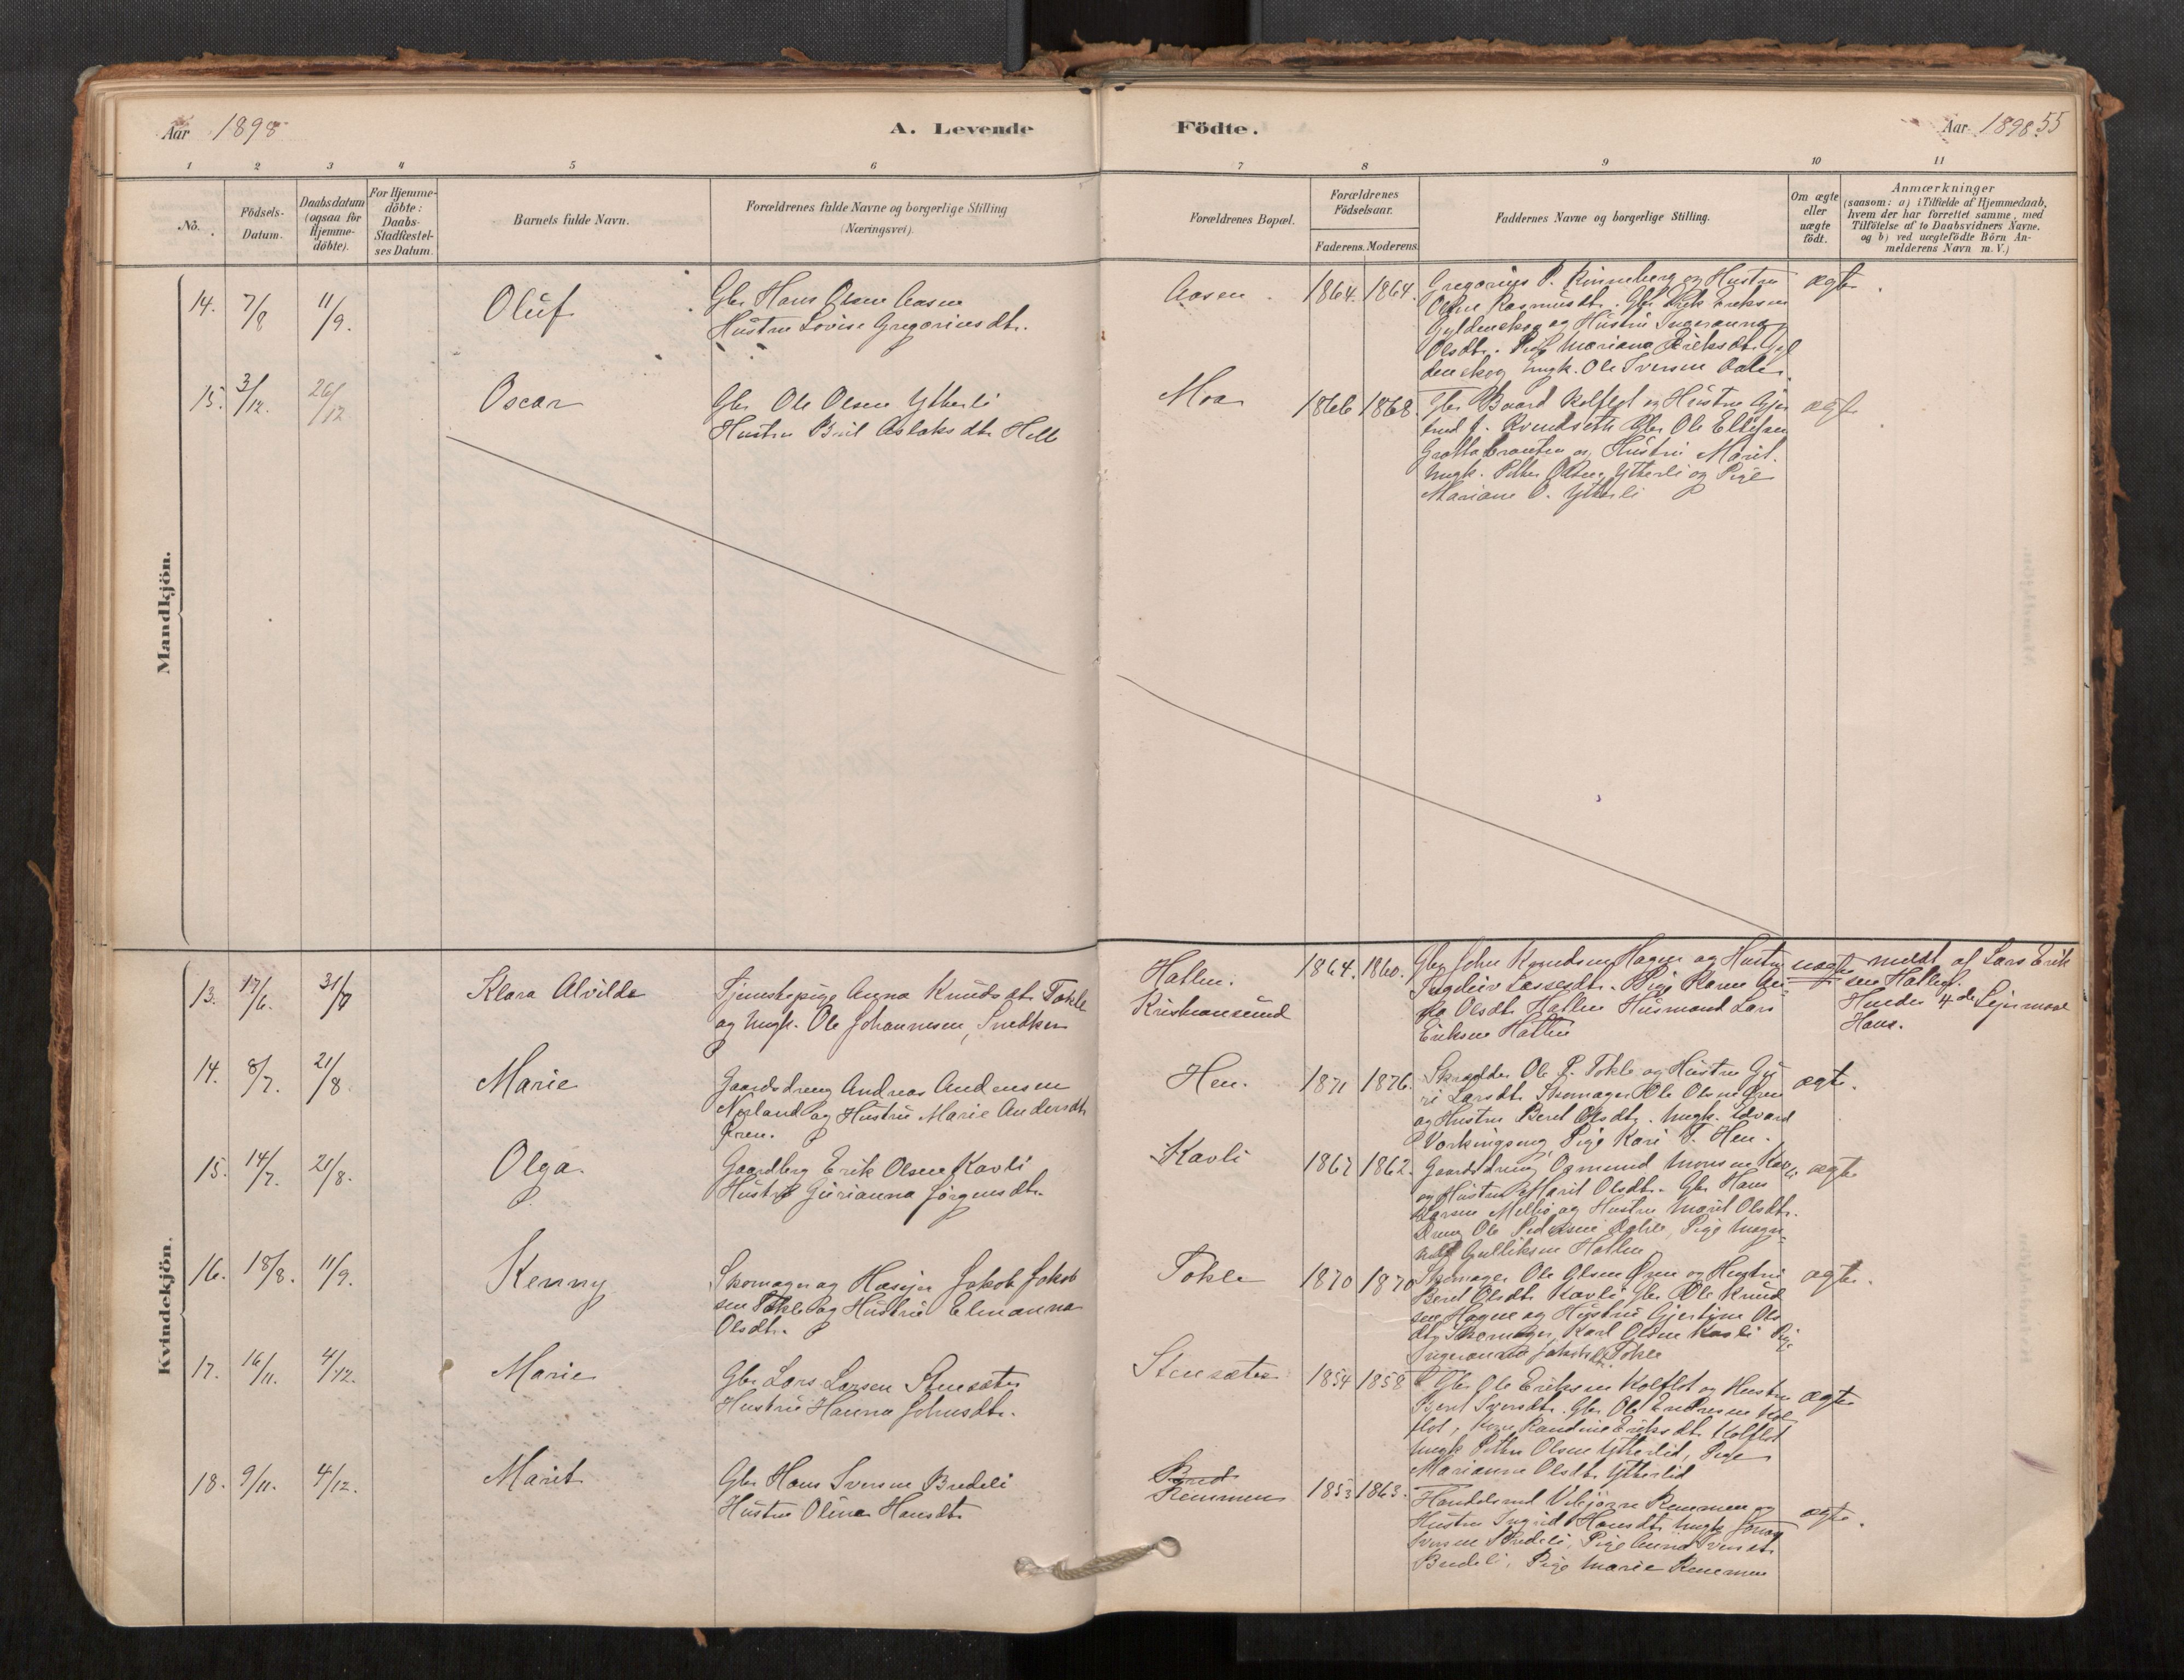 Aar 1898
A. Levende
Födte.
Aar 1898. 55
1 2 3 4 5 6 7 8 9 10 11
No.
Födsels-Datum.
Daabsdatum (ogsaa for Hjemme-döbte).
For Hjemme-döbte: Daabs-Stadfæstel-ses Datum.
Barnets fulde Navn.
Forældrenes fulde Navne og borgerlige Stilling
(Næringsvei).
Forældrenes Bopæl.
Forældrenes Födselsaar.
Faderens. Moderens.
Faddernes Navne og borgerlige Stilling.
Om ægte eller uægte födt.
Anmærkninger
(saasom: a) i Tilfælde af Hjemmedaab,
hvem der har forrettet samme, med
Tilföielse af to Daabsvidners Navne.
og b) ved uægtefödte Börn An-
melderens Navn m. V.)
Mandkjön.
14. 7/8 11/9. Oluf
Gbr Hans Olsen Aasen
Hustru Lovise Gregoriusdtr.
Aasen. 1864. 1864.
Gregorius P. Rinneberg og Hustru
Oline Rasmusdtr. Gbr Erik Eriksen
Gyldenskog og Hustru Ingeranna
Olsdtr. Pige Mariana Eriksdtr. Gyl
denskog Ungk. Ole Iversen
ægte.
15. 3/12. 26/12 Oscar
Gbr Ole Olsen Ytterli
Hustru Brit Aslaksdtr Helle
Moa 1866 1868.
Gbr Baard Kolflot og Hustru Gjer
trud J. Gbr Ole Ellefsen
Grottabrauten og Hustru Marit.
Ungk. Petter Olsen Ytterli og Pige
Mariane O. Ytterli
ægte
Kvindekjön.
13. 17/6. 31/7 Klara Alvilde
Tjenestepige Anna Knudsdtr Tokle
og Ungk. Ole Johannesen, Snedker
Hatlen.
Kristiansund
1864. 1860.
Gbr John Knudsen Hagen og Hustru
Ingeleiv Lassesdtr. Pige Karen An-
na Olsdtr Hatlen Husmand Lars
Eriksen Hatlen
uægte
meldt af Lars Erik
sen Hatlen.
Hendes 4de Leiermaal
Hans.
14. 8/7. 21/8. Marie
Gaardsdreng Andreas Andersen
Norland og Hustru Marie Andersdtr
Øren.
Hen. 1871 1876.
Skrædder Ole P. Tokle og Hustru Gu
ri Larsdtr. Skomager Ole Olsen Øren
og Hustru Beret Olsdtr. Ungk. Edvard
Vorkingseng, Pige Kari T. Hen.
ægte.
15. 14/7. 21/8. Olga.
Gaardbrg Erik Olsen Kavli
Hustru Gurianna Jörgensdtr.
Kavli 1867 1862.
Gaardsdreng Ogmund Monsen Kav
li og Hustru Marit Olsdtr. Gbr Hans
Larsen Melbö og Hustru Marit Olsdtr.
Dreng Ole Pedersen Dahle, Pige Magn
hild Gulliksen Hatlen
ægte
16. 18/8. 11/9. Kenny
Skomager og Husejer Jakob Jakob
sen Tokle og Hustru Elenanna
Olsdtr.
Tokle 1870 1870
Skomager Ole Olsen Øren og Hustru
Beret Olsdtr Kavli Gbr Ole Knud
sen Hagen og Hustru Gjertine Ols
dtr, Skomager Karl Olsen Kavli Pige
Ingeranna Jakobsdtr Tokle
ægte.
17. 16/11. 4/12. Marie
Gbr Lars Larsen Stensæter
Hustru Hanna Johnsdtr.
Stensæter 1854 1858
Gbr Ole Eriksen Kolflot og Hustru
Beret Iversdtr. Gbr Ole Endresen Kol
flot, Kone Randine Eriksdtr Kolflot
Ungk Petter Olsen Ytterlid, Pige
Marianne Olsdtr Ytterlid
ægte
18. 9/11. 4/12. Marit
Gbr Hans Iversen Bredeli
Hustru Olina Hansdtr
Bred
Remmem
1853 1863.
Handelsmd Vebjørn Remmem og
Hustru Ingrid Hansdtr Ungk Jonas
Iversen Bredeli, Pige Anna Iversdtr
Bredeli, Pige Marie Remmem
ægte.